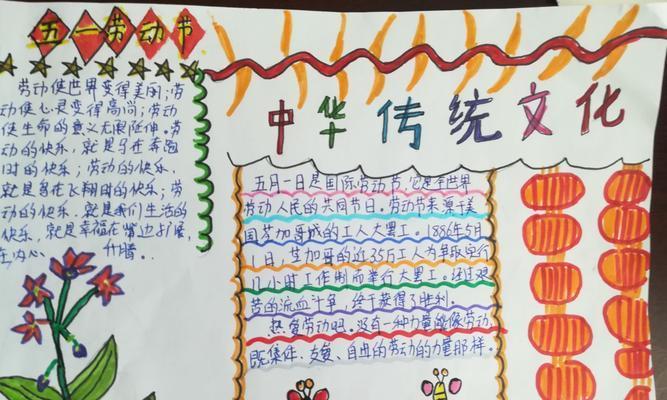 五一劳动节
中华传统文化
劳动使世界变得美丽;劳
动使心灵变得高尚;劳动
使生命的意义无限延伸。劳
动的快乐,就是马在奔跑
时的快乐;劳动的快乐,
就是鸟在飞翔时的快乐;劳
动的快乐,就是我们生活的
快乐,就是幸福在常边扩展,
在内心、升腾。
五月一日是国际劳动节,它是全世界
劳动人民的共同节日。劳动节来源于美
国芝加哥城的工人大罢工。1886年5月
1日,芝加哥的近35万工人为争取实行
八小时工作制而举行大罢工。经过艰
苦的流血斗争,终于获得了胜利。
热爱劳动吧。没有一种力量能像劳动,
既集体、友爱、自由的劳动的力量那样。